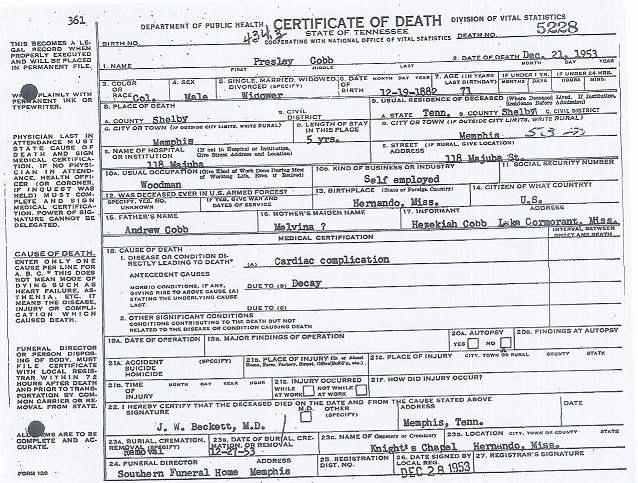 361
DEPARTMENT OF PUBLIC HEALTH CERTIFICATE OF DEATH DIVISION OF VITAL STATISTICS
STATE OF TENNESSEE
COOPERATING WITH NATIONAL OFFICE OF VITAL STATISTICS
BIRTH NO. DEATH NO. 5228
THIS BECOMES A LEGAL RECORD WHEN PROPERLY EXECUTED AND WILL BE PLACED IN PERMANENT FILE.
WRITE PLAINLY WITH PERMANENT INK OR TYPEWRITER.
PHYSICIAN LAST IN ATTENDANCE MUST STATE CAUSE OF DEATH AND SIGN MEDICAL CERTIFICATION. IF NO PHYSICIAN IN ATTENDANCE, HEALTH OFFICER (OR CORONER, IF INQUEST WAS HELD) MUST COMPLETE AND SIGN MEDICAL CERTIFICATION. POWER OF SIGNATURE CANNOT BE DELEGATED.
CAUSE OF DEATH.
ENTER ONLY ONE CAUSE PER LINE FOR A. B. C. * THIS DOES NOT MEAN MODE OF DYING SUCH AS HEART FAILURE, ASTHENIA, ETC. IT MEANS THE DISEASE, INJURY OR COMPLICATION WHICH CAUSED DEATH.
FUNERAL DIRECTOR OR PERSON DISPOSING OF BODY, MUST FILE CERTIFICATE WITH LOCAL REGISTRAR WITHIN 72 HOURS AFTER DEATH AND PRIOR TO TRANSPORTATION BY COMMON CARRIER OR REMOVAL FROM STATE.
ALL ITEMS ARE TO BE COMPLETE AND ACCURATE.
FORM 120
1. NAME Presley Cobb
FIRST MIDDLE LAST
2. DATE OF DEATH Dec. 21, 1953
MONTH DAY YEAR
3. COLOR OR RACE Col.
4. SEX Male
5. SINGLE, MARRIED, WIDOWED, DIVORCED (SPECIFY) Widower
6. DATE OF BIRTH MONTH DAY YEAR 12-19-1882
7. AGE (IN YEARS LAST BIRTHDAY) 71
IF UNDER 1 YR. MONTHS DAYS
IF UNDER 24 HRS. HOURS MINS.
8. PLACE OF DEATH
A. COUNTY Shelby
B. CIVIL DISTRICT
C. CITY OR TOWN (IF OUTSIDE CITY LIMITS, WRITE RURAL) Memphis
D. LENGTH OF STAY IN THIS PLACE 5 yrs.
E. NAME OF HOSPITAL OR INSTITUTION (If not in Hospital or Institution, Give Street Address and Location) 118 Majuba
9. USUAL RESIDENCE OF DECEASED (Where Deceased Lived. If Institution, Residence Before Admission)
A. STATE Tenn. B. COUNTY Shelby C. CIVIL DISTRICT
D. CITY OR TOWN (IF OUTSIDE CITY LIMITS, WRITE RURAL) Memphis
E. STREET ADDRESS (IF RURAL, GIVE LOCATION) 118 Majuba St.
10A. USUAL OCCUPATION (Give Kind of Work Done During Most of Working Life, Even if Retired) Woodman
10B. KIND OF BUSINESS OR INDUSTRY Self employed
11. SOCIAL SECURITY NUMBER
12. WAS DECEASED EVER IN U.S. ARMED FORCES?
SPECIFY, YES, NO, UNKNOWN IF YES, GIVE WAR AND DATES OF SERVICE
13. BIRTHPLACE (State or Foreign Country) Hernando, Miss.
14. CITIZEN OF WHAT COUNTRY? U.S.
15. FATHER'S NAME Andrew Cobb
16. MOTHER'S MAIDEN NAME Melvina ?
17. INFORMANT Hezekiah Cobb
ADDRESS Lake Cormorant, Miss.
MEDICAL CERTIFICATION
INTERVAL BETWEEN ONSET AND DEATH
18. CAUSE OF DEATH
1. DISEASE OR CONDITION DIRECTLY LEADING TO DEATH* (A) Cardiac complication
ANTECEDENT CAUSES
MORBID CONDITIONS, IF ANY, GIVING RISE TO ABOVE CAUSE (A) STATING THE UNDERLYING CAUSE LAST.
DUE TO (B) Decay
DUE TO (C)
2. OTHER SIGNIFICANT CONDITIONS
CONDITIONS CONTRIBUTING TO THE DEATH BUT NOT RELATED TO THE DISEASE OR CONDITION CAUSING DEATH
19A. DATE OF OPERATION
19B. MAJOR FINDINGS OF OPERATION
20A. AUTOPSY YES NO
20B. FINDINGS AT AUTOPSY
21A. ACCIDENT SUICIDE HOMICIDE (SPECIFY)
21B. PLACE OF INJURY (In or About Home, Farm, Factory, Street, Office Building, etc.)
21C. PLACE OF INJURY CITY, TOWN OR RURAL COUNTY STATE
21D. TIME OF INJURY MONTH DAY YEAR HOUR
21E. INJURY OCCURRED WHILE AT WORK NOT WHILE AT WORK
21F. HOW DID INJURY OCCUR?
22. I HEREBY CERTIFY THAT THE DECEASED DIED ON THE DATE AND FROM THE CAUSE STATED ABOVE
SIGNATURE J. W. Beckett, M.D.
M.D. OTHER (SPECIFY)
ADDRESS Memphis, Tenn.
DATE
23A. BURIAL, CREMATION, REMOVAL (SPECIFY) Removal
23B. DATE OF BURIAL, CREMATION, OR REMOVAL 12-27-53
23C. NAME OF Cemetery or Crematory Knight's Chapel
23D. LOCATION CITY, TOWN OR COUNTY STATE Hernando, Miss.
24. FUNERAL DIRECTOR ADDRESS Southern Funeral Home Memphis
25. REGISTRATION DIST. NO.
26. DATE SIGNED BY LOCAL REG. DEC 28 1953
27. REGISTRAR'S SIGNATURE